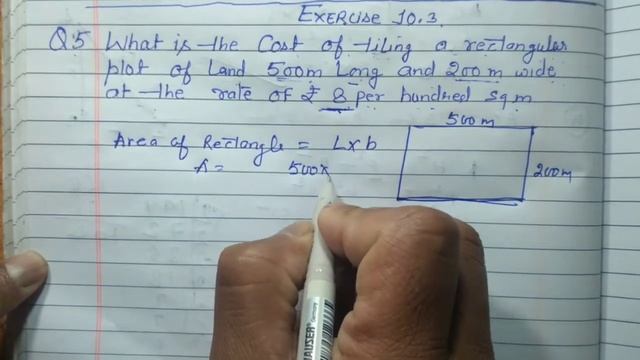 EXERCISE 10.3
Q.5 What is the Cost of tiling a rectangular
plot of land 500m Long and 200m wide
at the rate of ₹ 8 per hundred sq m
500m
Area of Rectangle = L×b
A = 500×
200m
HAUSER
Germany